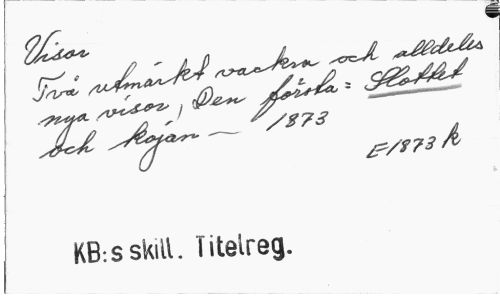 Visor
Två utmärkt vackra och alldeles
nya visor, Den första: Slottet
och kojan — 1873
E1873 k
KB:s skill. Titelreg.